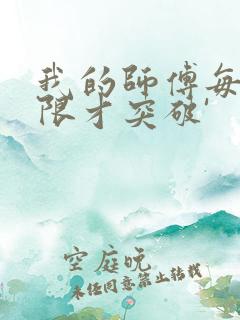 我的师傅每
限才突破'
空庭晚
未经同意禁止转载